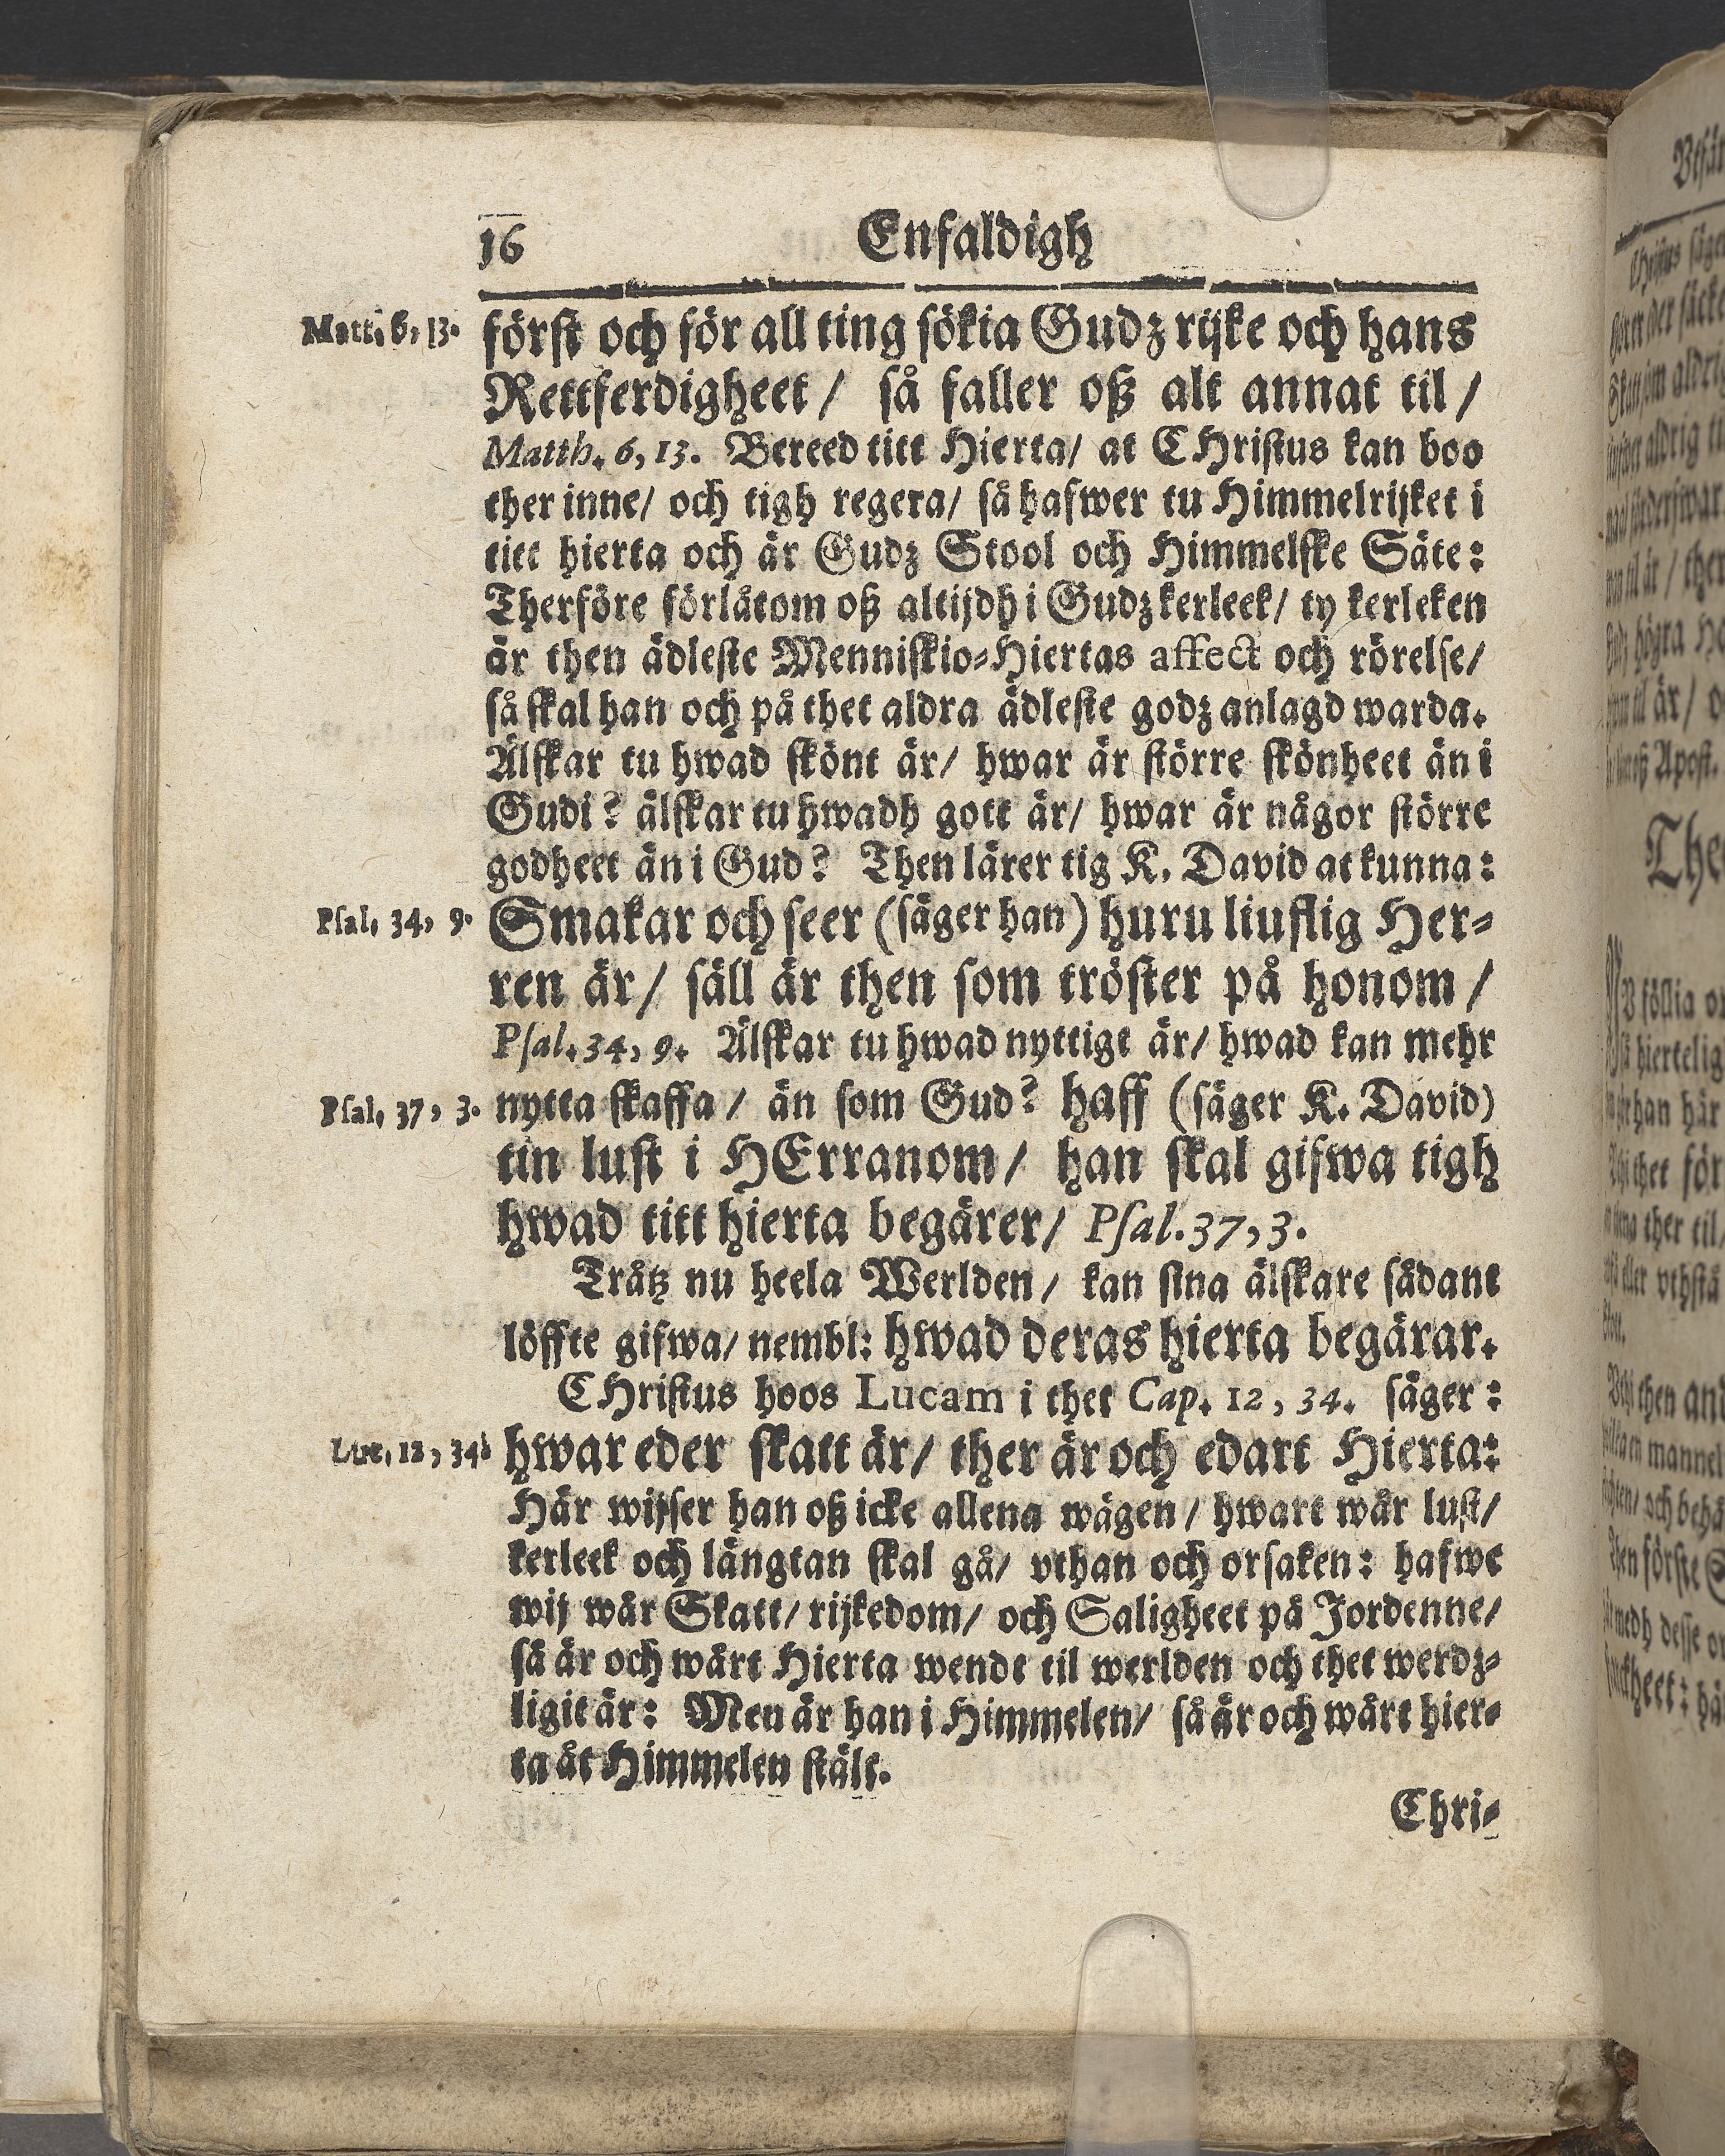 16 Enfaldigh
Matt. 6, 13. först och för all ting sökia Gudz rijke och hans
Rettferdigheet / så faller oß alt annat til /
Matth. 6, 13. Bereed titt Hierta / at CHristus kan boo
ther inne / och tigh regera / så hafwer tu Himmelrijket i
titt hierta och är Gudz Stool och Himmelske Säte:
Therföre förlåtom oß altijdh i Gudz kerleek / ty kerleken
är then ädleste Menniskio-Hiertas affect och rörelse /
så skal han och på thet aldra ädleste godz anlagd warda.
Älskar tu hwad skönt är / hwar är större skönheet än i
Gudi? älskar tu hwadh gott är / hwar är någor större
godheet än i Gud? Then lärer tig K. David at kunna:
Psal. 34, 9. Smakar och seer (säger han) huru liuflig Her-
ren är / säll är then som tröster på honom /
Psal. 34, 9. Älskar tu hwad nyttigt är / hwad kan mehr
Psal. 37, 3. nytta skaffa / än som Gud? haff (säger K. David)
tin lust i HErranom / han skal gifwa tigh
hwad titt hierta begärer / Psal. 37, 3.
Tråtz nu heela Werlden / kan sina älskare sådant
löffte gifwa / nembl: hwad deras hierta begärar.
CHristus hoos Lucam i thet Cap. 12, 34. säger:
Luc. 12, 34. hwar eder skatt är / ther är och edart Hierta:
Här wijser han oß icke allena wägen / hwart wår lust /
kerleek och längtan skal gå / vthan och orsaken: hafwe
wij wår Skatt / rijkedom / och Saligheet på Jordenne /
så är och wårt Hierta wendt til werlden och thet werdz-
ligit är: Men är han i Himmelen / så är och wårt hier-
ta åt Himmelen stält.
Chri-